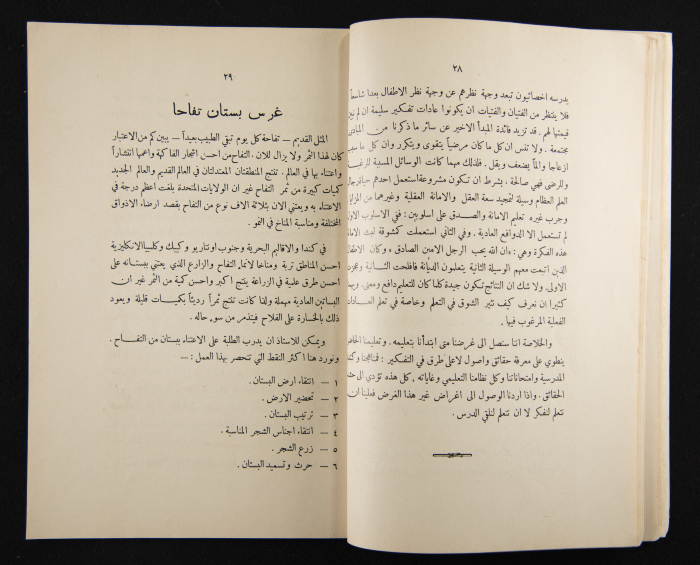 ٢٨
يدرسه اخصائيون تبعد وجهة نظرهم عن وجهة نظر الاطفال بعداً شاسعاً
فلا ينتظر من الفتيان والفتيات ان يكونوا عادات تفكير سليمة ان لم نبين
قيمتها لهم . قد تزيد فائدة المبدأ الاخير عن سائر ما ذكرنا من المبادئ
مجتمعة . ولا تنس ان كل ما كان مرضياً يتقوى ويتكرر وان كل ما سبب
ازعاجا والماً يضعف ويقل . فلذلك مهما كانت الوسائل المسببة للرغبة
وللرضى فهي صالحة ، بشرط ان تكون مشروعة استعمل احدهم
العلم العظام وسيلة لتمجيد سعة العقل والامانة العقلية وغيرهما من المزايا
وجرب غيره تعليم الامانة والصدق على اسلوبين : ففي الاسلوب الاول
لم تستعمل الا الدوافع العادية . وفي الثاني استعملت كشوقة لبث الامانة
هذه الفكرة وهي : «ان الله يحب الرجل الامين الصادق ، وكان الاطفال
الذين اتبعت معهم الوسيلة الثانية يتعلمون الديانة فافلحت الثانية
الاولى . ولا شك ان النتائج تكون جيدة كما كان للتعليم دافع ومعنى .
كثيرا ان نعرف كيف تثير الشوق في التعلم وخاصة في تعلم العادات
الفعلية المرغوب فيها .
والخلاصة اننا سنصل الى غرضنا متى ابتدأنا بتعليمه . وتعليمنا
ينطوي على معرفة حقائق واصول لا على طرق في التفكير : فمناهجنا
المدرسية وامتحاناتنا وكل نظامنا التعليمي وغاياته ، كل هذه تؤدي الى
الحقائق . واذا اردنا الوصول الى اغراض غير هذا الغرض فعلينا ان
نتعلم لنفكر لا ان نتعلم لنلقي الدرس .
٢٩
غرس بستان تفاحا
المثل القديم — تفاحة كل يوم تبقي الطبيب بعيداً — يبين كم من الاعتبار
كان لهذا الثمر ولا يزال للان . التفاح من احسن اشجار الفاكهة واعمها انتشاراً
واعتناء بها في العالم . تنتج المنطقتان المعتدلتان في العالم القديم والعالم الجديد
كميات كبيرة من ثمر التفاح غير ان الولايات المتحدة بلغت اعظم درجة في
الاعتناء به ويعتني الان بثلاثة الاف نوع من التفاح بقصد ارضاء الاذواق
المختلفة ومناسبة المناخ في النمو .
في كندا والاقاليم البحرية وجنوب اونتاريو وكيبك وكلمبيا الانكليزية
احسن المناطق تربة ومناخا لانماء التفاح والزارع الذي يعتني ببستانه على
احسن طرق علمية في الزراعة ينتج اكبر واحسن كمية من الثمر غير ان
البساتين العادية مهملة ولذا كانت تنتج ثمراً رديئاً بكميات قليلة ويعود
ذلك بالخسارة على الفلاح فيتذمر من سوء حاله .
ويمكن للاستاذ ان يدرب الطلبة على الاعتناء ببستان من التفاح .
ونورد هنا اكثر النقط التي تنحصر بهذا العمل : —
١ — انتقاء ارض البستان .
٢ — تحضير الارض .
٣ — ترتيب البستان .
٤ — انتقاء اجناس الشجر المناسبة .
٥ — زرع الشجر .
٦ — حرث وتسميد البستان .